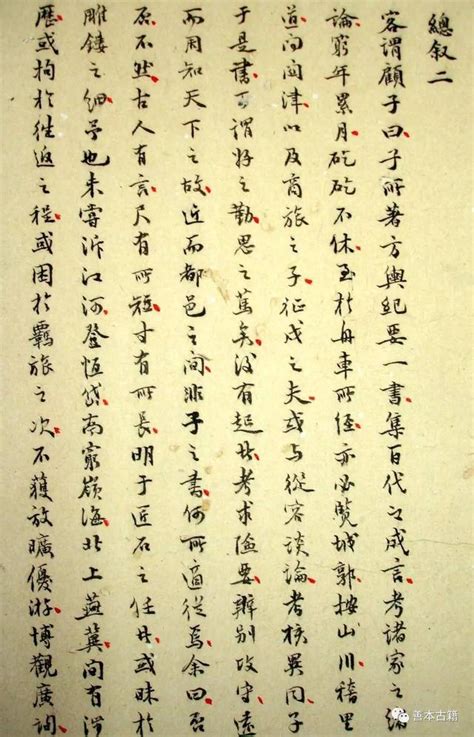 總叙二
客謂顧子曰子所著方輿紀要一書集百代之成言考諸家之緒
論窮年累月矻矻不休至於舟車所經亦必覽城郭按山川稽里
道問關津以及商旅之子征戍之夫或与從容談論考核異同子
于是書可謂好之勤思之篤矣設有起者考求險要辨别攻守遠
而周知天下之故近而都邑之間非子之書何所適從焉余曰否
不然古人有言尺有所短寸有所長明于匠石之任者或昧於
雕鏤之細予也未嘗泝江河登恆岱南窮嶺海北上燕冀間有涉
歷或拘於往返之程或困於羈旅之次不獲放曠優游博觀廣詢
善本古籍